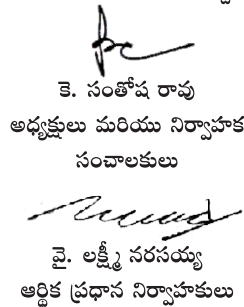 కె. సంతోష రావు
అధ్యక్షులు మరియు నిర్వాహక
సంచాలకులు
వై. లక్ష్మీ నరసయ్య
ఆర్థిక ప్రధాన నిర్వాహకులు